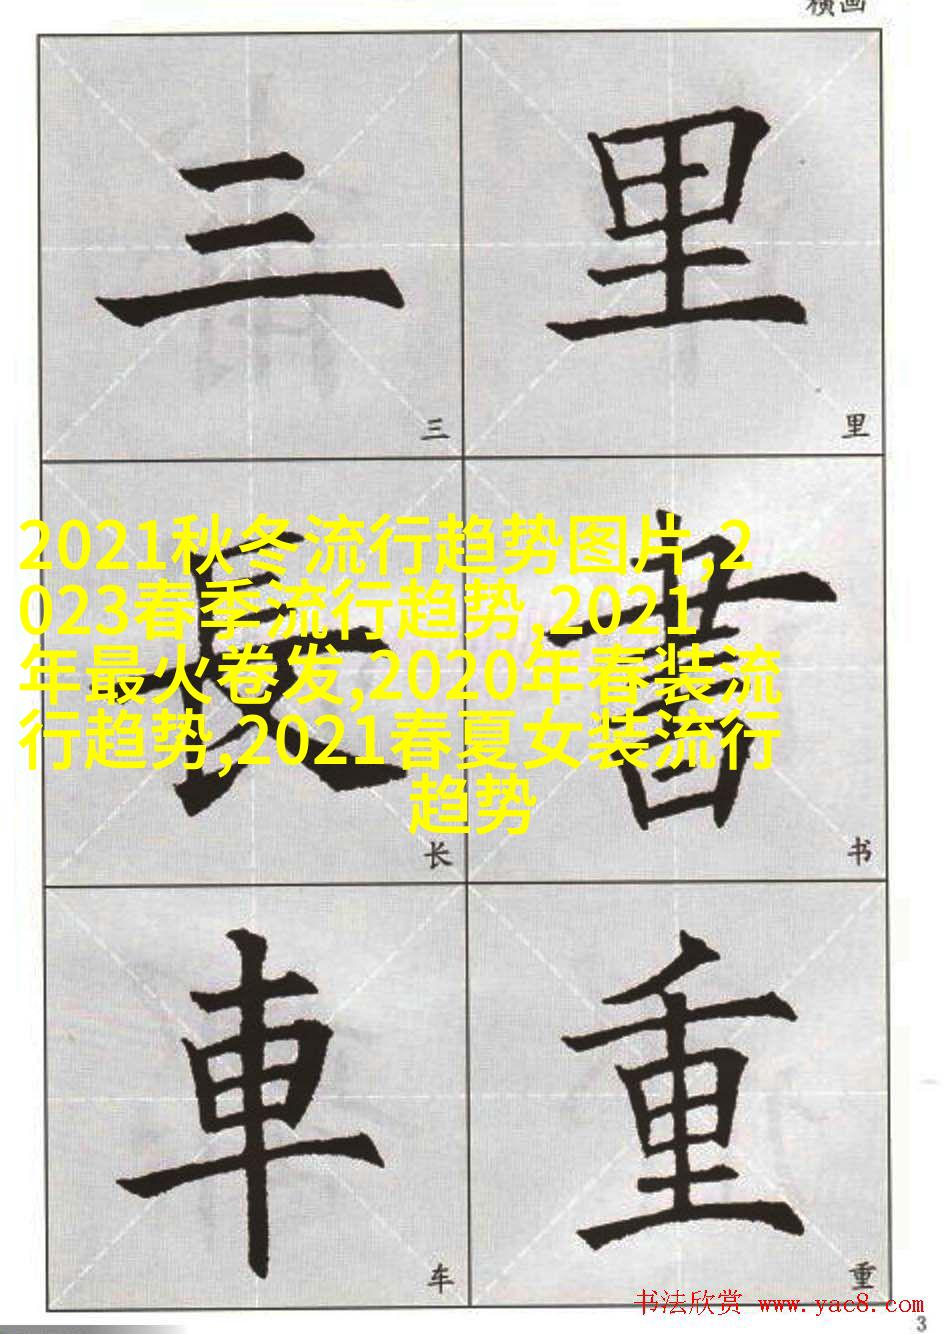 横画
三 里
三 里
2021秋冬流行趋势图片,2
023春季流行趋势,2021
年最火卷发,2020年春装流
行趋势,2021春夏女装流行
趋势
長 書
长 书
車 重
车 重
书法欣赏 www.yac8.com
3